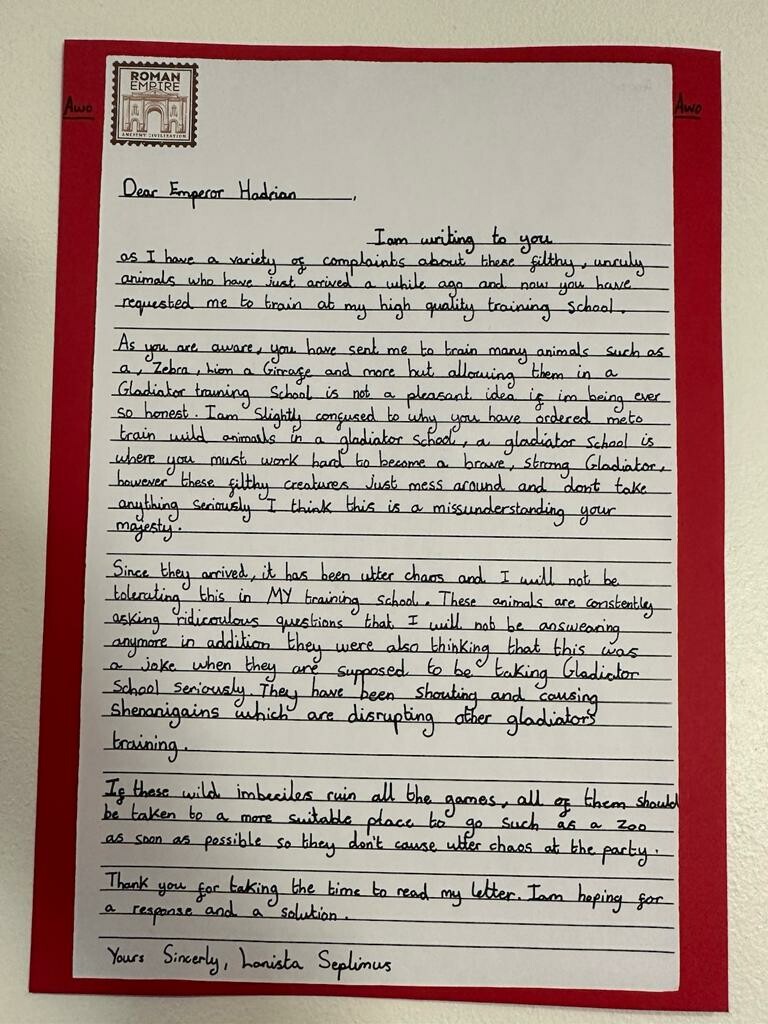 ROMAN
EMPIRE
ANCIENT CIVILIZATION
Awo
Awo
Dear Emperor Hadrian,
I am writing to you
as I have a variety of complaints about these filthy, unruly
animals who have just arrived a while ago and now you have
requested me to train at my high quality training school.
As you are aware, you have sent me to train many animals such as
a, Zebra, Lion a Girrafe and more but allowing them in a
Gladiator training School is not a pleasant idea if im being ever
so honest. I am Slightly confused to why you have ordered me to
train wild animals in a gladiator school, a gladiator School is
where you must work hard to become a brave, strong Gladiator,
however these filthy creatures just mess around and dont take
anything seriously I think this is a missunderstanding your
majesty.
Since they arrived, it has been utter chaos and I will not be
tolerating this in MY training school. These animals are constently
asking ridiculous questions that I will not be answearing
anymore in addition they were also thinking that this was
a joke when they are supposed to be taking Gladiator
School seriously. They have been shouting and causing
shenanigains which are disrupting other gladiators
training.
If these wild imbeciles ruin all the games, all of them should
be taken to a more suitable place to go such as a zoo
as soon as possible so they don't cause utter chaos at the party.
Thank you for taking the time to read my letter. I am hoping for
a response and a solution.
Yours Sincerly, Lanista Septimus